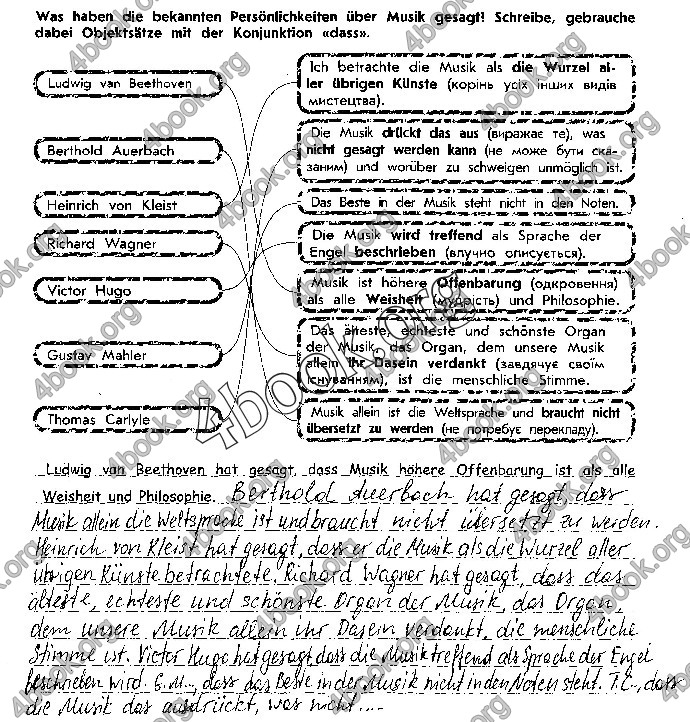 Was haben die bekannten Persönlichkeiten über Musik gesagt! Schreibe, gebrauche
dabei Objektsätze mit der Konjunktion «dass».
Ludwig van Beethoven
Berthold Auerbach
Heinrich von Kleist
Richard Wagner
Victor Hugo
Gustav Mahler
Thomas Carlyle
Ich betrachte die Musik als die Wurzel al-
ler übrigen Künste (корінь усіх інших видів
мистецтва).
Die Musik drückt das aus (виражає те), was
nicht gesagt werden kann (не може бути ска-
заним) und worüber zu schweigen unmöglich ist.
Das Beste in der Musik steht nicht in den Noten.
Die Musik wird treffend als Sprache der
Engel beschrieben (влучно описується).
Musik ist höhere Offenbarung (одкровення)
als alle Weisheit (мудрість) und Philosophie.
Das älteste, echteste und schönste Organ
der Musik, das Organ, dem unsere Musik
allein ihr Dasein verdankt (завдячує своїм
існуванням), ist die menschliche Stimme.
Musik allein ist die Weltsprache und braucht nicht
übersetzt zu werden (не потребує перекладу).
Ludwig van Beethoven hat gesagt, dass Musik höhere Offenbarung ist als alle
Weisheit und Philosophie. Berthold Auerbach hat gesagt, dass
Musik allein die Weltsprache ist und braucht nicht übersetzt zu werden.
Heinrich von Kleist hat gesagt, dass er die Musik als die Wurzel aller
übrigen Künste betrachtete. Richard Wagner hat gesagt, dass das
älteste, echteste und schönste Organ der Musik, das Organ,
dem unsere Musik allein ihr Dasein verdankt, die menschliche
Stimme ist. Victor Hugo hat gesagt dass die Musik treffend als Sprache der Engel
beschrieben wird. G.M.., dass das Beste in der Musik nicht in den Noten steht. T.C.., dass
die Musik das ausdrückt, was nicht ....
4book.org